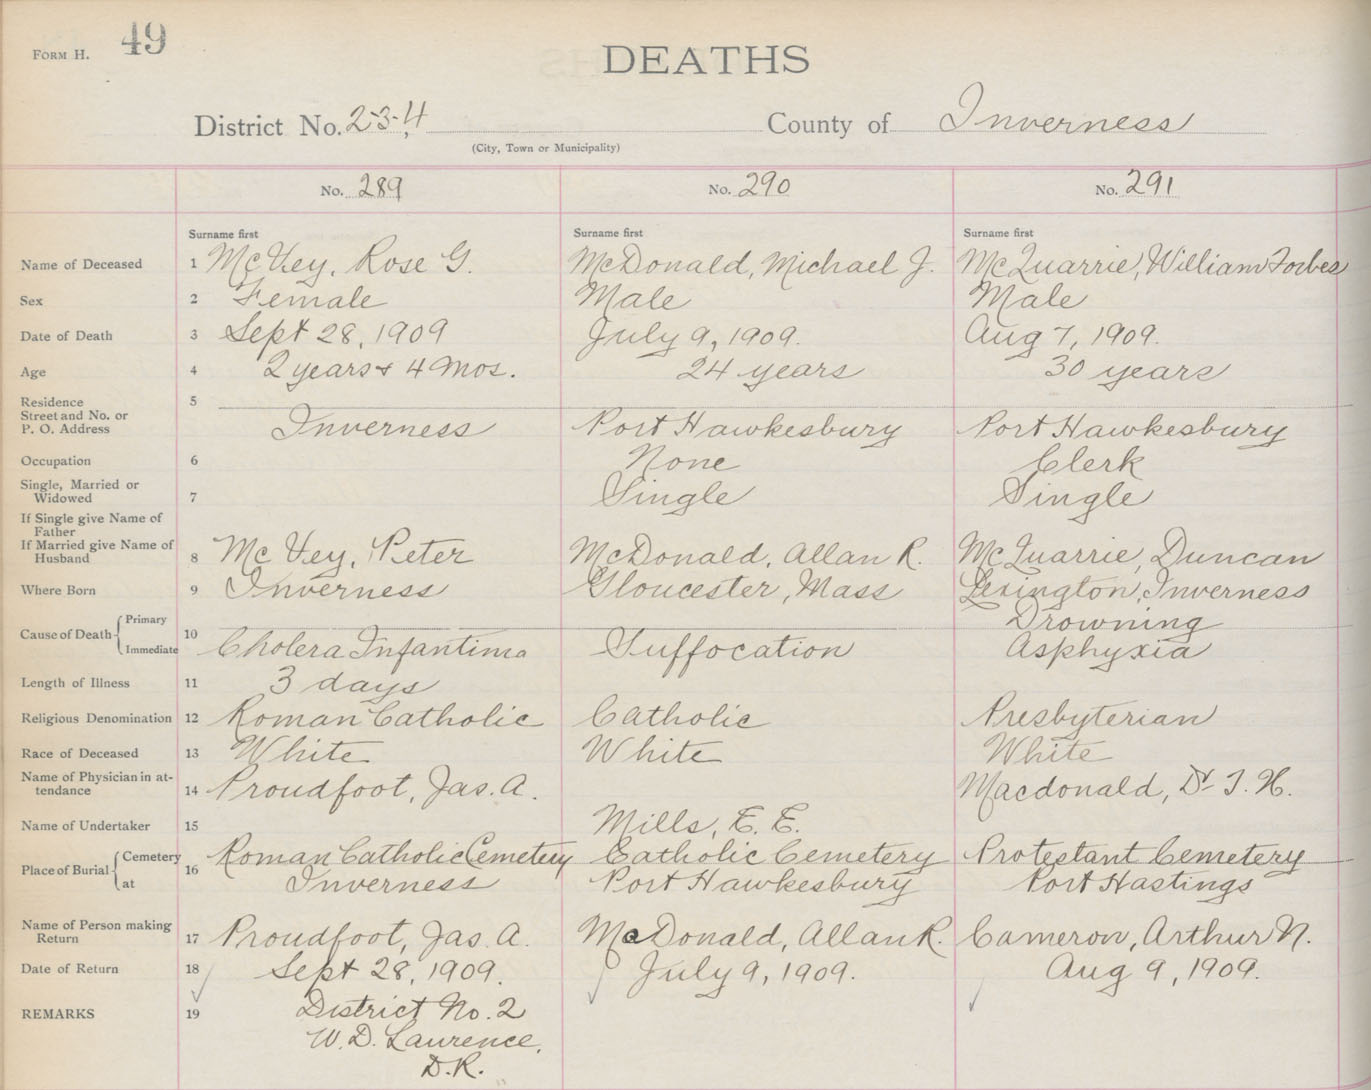 FORM H. 49
DEATHS
District No. 2-3-4 County of Inverness
(City, Town or Municipality)
No. 289 No. 290 No. 291
Surname first Surname first Surname first
Name of Deceased 1 McVey, Rose G. McDonald, Michael J. McQuarrie, William Forbes
Sex 2 Female Male Male
Date of Death 3 Sept 28, 1909 July 9, 1909. Aug 7, 1909.
Age 4 2 years & 4 Mos. 24 years 30 years
Residence 5
Street and No. or
P. O. Address Inverness Port Hawkesbury Port Hawkesbury
Occupation 6 None Clerk
Single, Married or
Widowed 7 Single Single
If Single give Name of
Father
If Married give Name of
Husband 8 McVey, Peter McDonald, Allan R. McQuarrie, Duncan
Where Born 9 Inverness Gloucester, Mass Lexington, Inverness
Cause of Death Primary Drowning
Immediate 10 Cholera Infantima Suffocation Asphyxia
Length of Illness 11 3 days
Religious Denomination 12 Roman Catholic Catholic Presbyterian
Race of Deceased 13 White White White
Name of Physician in at-
tendance 14 Proudfoot, Jas. A. Macdonald, Dr T. H.
Name of Undertaker 15 Mills, E. E.
Place of Burial Cemetery 16 Roman Catholic Cemetery Catholic Cemetery Protestant Cemetery
at Inverness Port Hawkesbury Port Hastings
Name of Person making
Return 17 Proudfoot, Jas. A. McDonald, Allan R. Cameron, Arthur N.
Date of Return 18 Sept 28, 1909. July 9, 1909. Aug 9, 1909.
REMARKS 19 District No. 2
W. D. Laurence,
D.R.